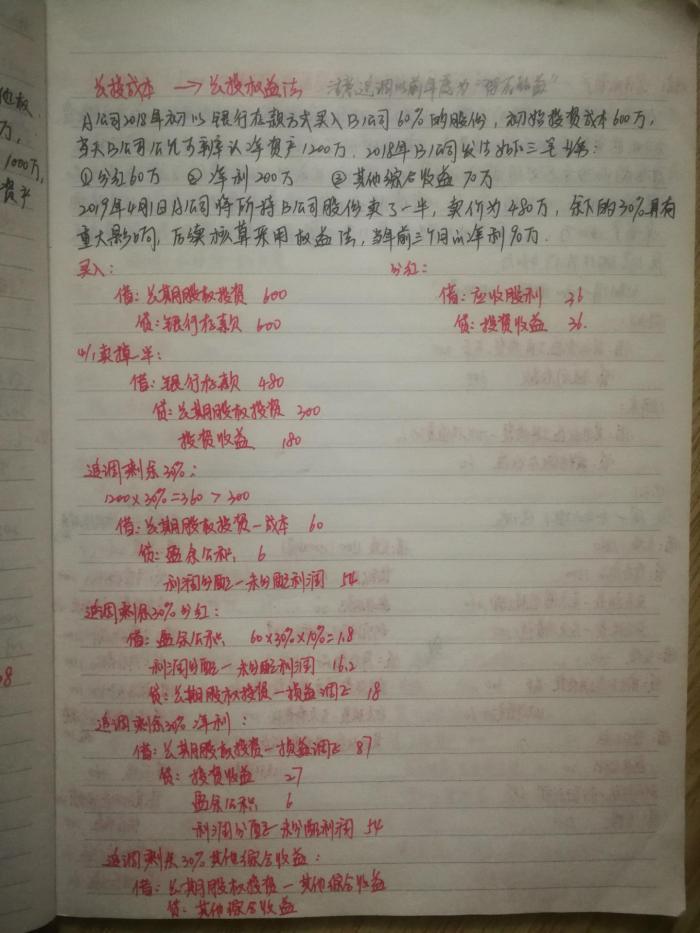 他权
万,
1000万,
资产
8
长投成本 → 长投权益法 注意追调以前年度为"留存收益"
A公司2018年初以银行存款方式买入B公司60%的股份, 初始投资成本600万,
当天B公司公允可辨认净资产1200万. 2018年B公司发生如下三笔业务:
①分红60万 ②净利200万 ③其他综合收益 70万
2019年4月1日A公司将所持B公司股份卖了一半, 卖价为480万, 余下的30%具有
重大影响, 后续核算采用权益法, 当年前三个月的净利90万.
买入: 分红:
借: 长期股权投资 600 借: 应收股利 36
贷: 银行存款 600 贷: 投资收益 36.
4/1卖掉一半:
借: 银行存款 480
贷: 长期股权投资 300
投资收益 180
追调剩余30%:
1200×30%=360 > 300
借: 长期股权投资—成本 60
贷: 盈余公积 6
利润分配—未分配利润 54
追调剩余30%分红:
借: 盈余公积 60×30%×10%=1.8
利润分配—未分配利润 16.2
贷: 长期股权投资—损益调整 18
追调剩余30% 净利:
借: 长期股权投资—损益调整 87
贷: 投资收益 27
盈余公积 6
利润分配—未分配利润 54
追调剩余30%其他综合收益:
借: 长期股权投资—其他综合收益
贷: 其他综合收益